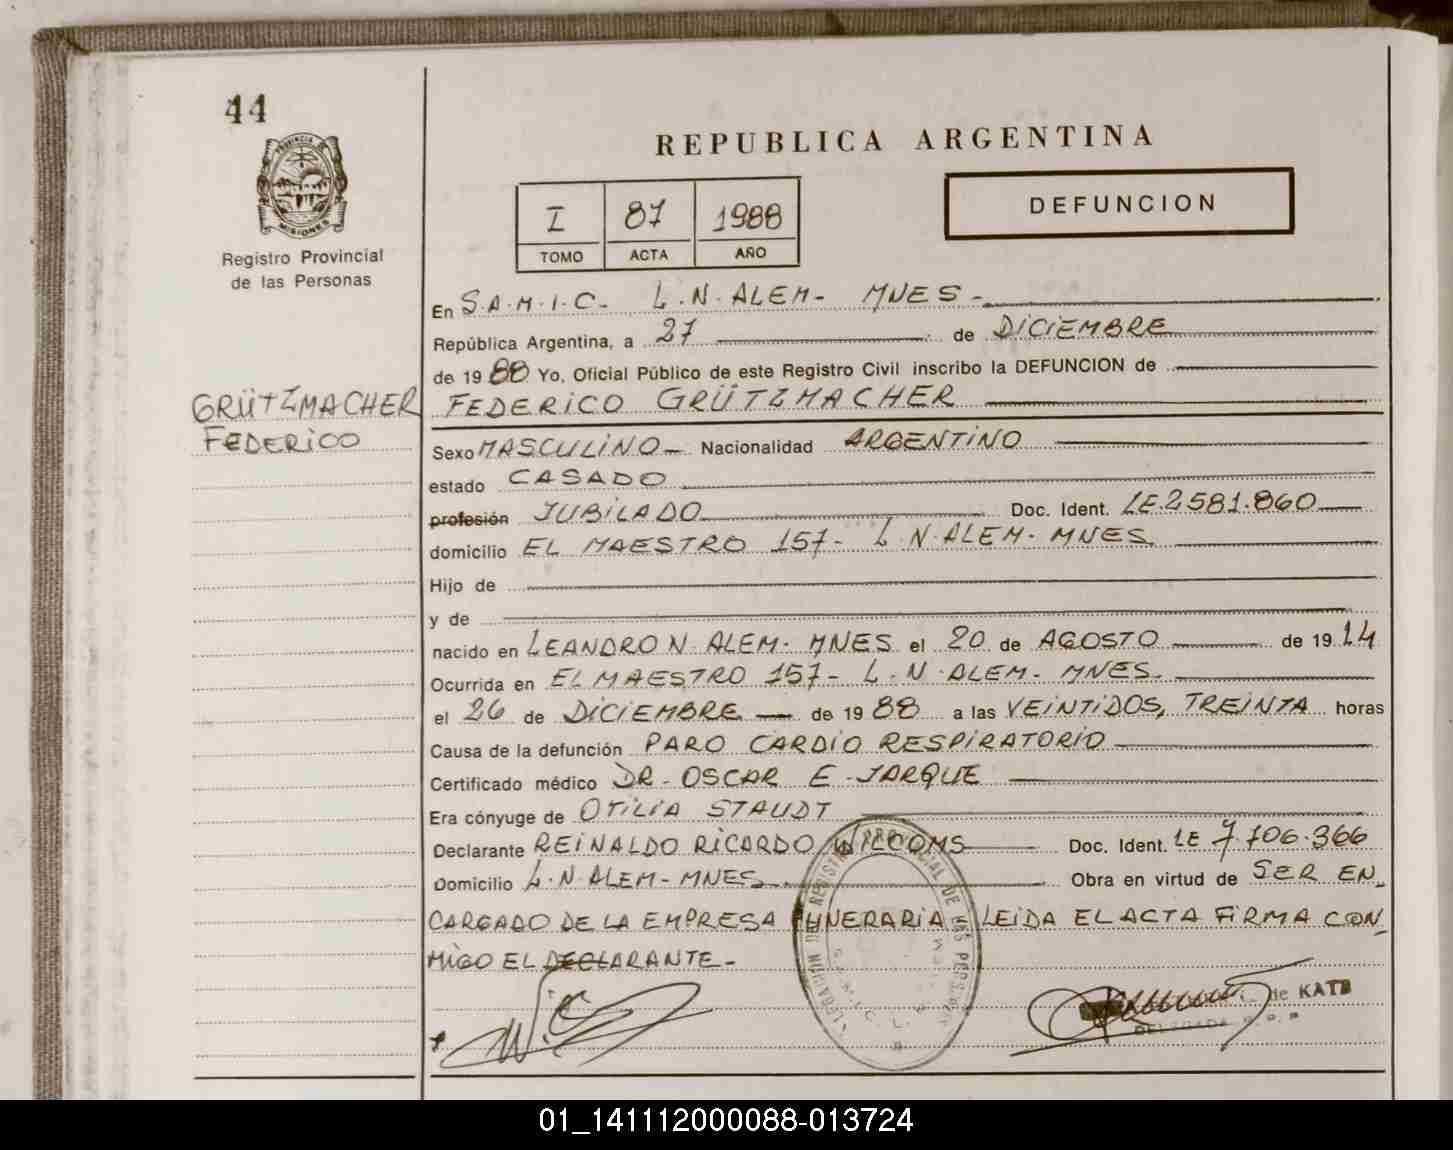 44
PROVINCIA DE
MISIONES
Registro Provincial
de las Personas
GRÜTZMACHER
FEDERICO
REPUBLICA ARGENTINA
I 87 1988
TOMO ACTA AÑO
DEFUNCION
En S.A.M.I.C. L.N. ALEM- MNES-
República Argentina, a 27 de DICIEMBRE
de 1988 Yo, Oficial Público de este Registro Civil inscribo la DEFUNCION de
FEDERICO GRÜTZMACHER
Sexo MASCULINO Nacionalidad ARGENTINO
estado CASADO
profesión JUBILADO Doc. Ident. LE.2581.860
domicilio EL MAESTRO 157- L.N.ALEM. MNES.
Hijo de
y de
nacido en LEANDRO N. ALEM- MNES el 20 de AGOSTO de 1914
Ocurrida en EL MAESTRO 157- L.N. ALEM. MNES.
el 26 de DICIEMBRE de 1988 a las VEINTIDOS, TREINTA horas
Causa de la defunción PARO CARDIO RESPIRATORIO
Certificado médico DR. OSCAR E. JARQUE
Era cónyuge de OTILIA STAUDT
Declarante REINALDO RICARDO WILCOMS Doc. Ident. LE 7.706.366
Domicilio L.N. ALEM-MNES. Obra en virtud de SER EN_
CARGADO DE LA EMPRESA FUNERARIA LEIDA EL ACTA FIRMA CON_
MIGO EL DECLARANTE-
REGISTRO PROVINCIAL DE LAS PERSONAS
de KATZ
DELEGADA R.P.P
01_141112000088-013724